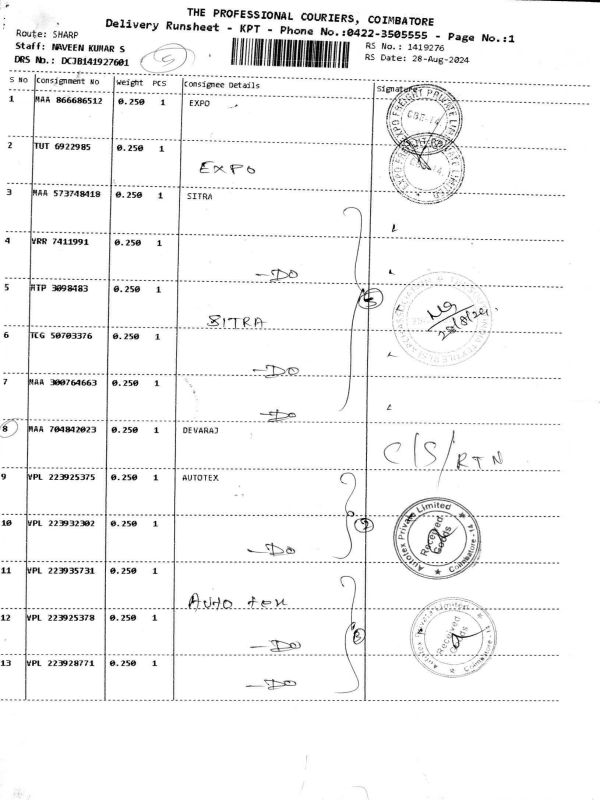 THE PROFESSIONAL COURIERS, COIMBATORE
Delivery Runsheet - KPT - Phone No.:0422-3505555 - Page No.:1
Route: SHARP
Staff: NAVEEN KUMAR S RS No.: 1419276
DRS No.: DCJB141927601 RS Date: 28-Aug-2024
S NO Consignment No Weight PCS Consignee Details Signature
1 MAA 866686512 0.250 1 EXPO
2 TUT 6922985 0.250 1
EXPO
3 MAA 573748418 0.250 1 SITRA
4 VRR 7411991 0.250 1
-DO
5 MTP 3098483 0.250 1
SITRA
28/8/24
6 TCG 50703376 0.250 1
-DO
7 MAA 300764663 0.250 1
-DO
8 MAA 704842023 0.250 1 DEVARAJ
C/S/RTN
9 VPL 223925375 0.250 1 AUTOTEX
Autotex Private Limited
Received Goods
Coimbatore - 14
10 VPL 223932302 0.250 1
-DO
2
11 VPL 223935731 0.250 1
AUTO TEX
12 VPL 223925378 0.250 1
-DO
3
Autotex Private Limited
Received Goods
Coimbatore - 14
13 VPL 223928771 0.250 1
-DO